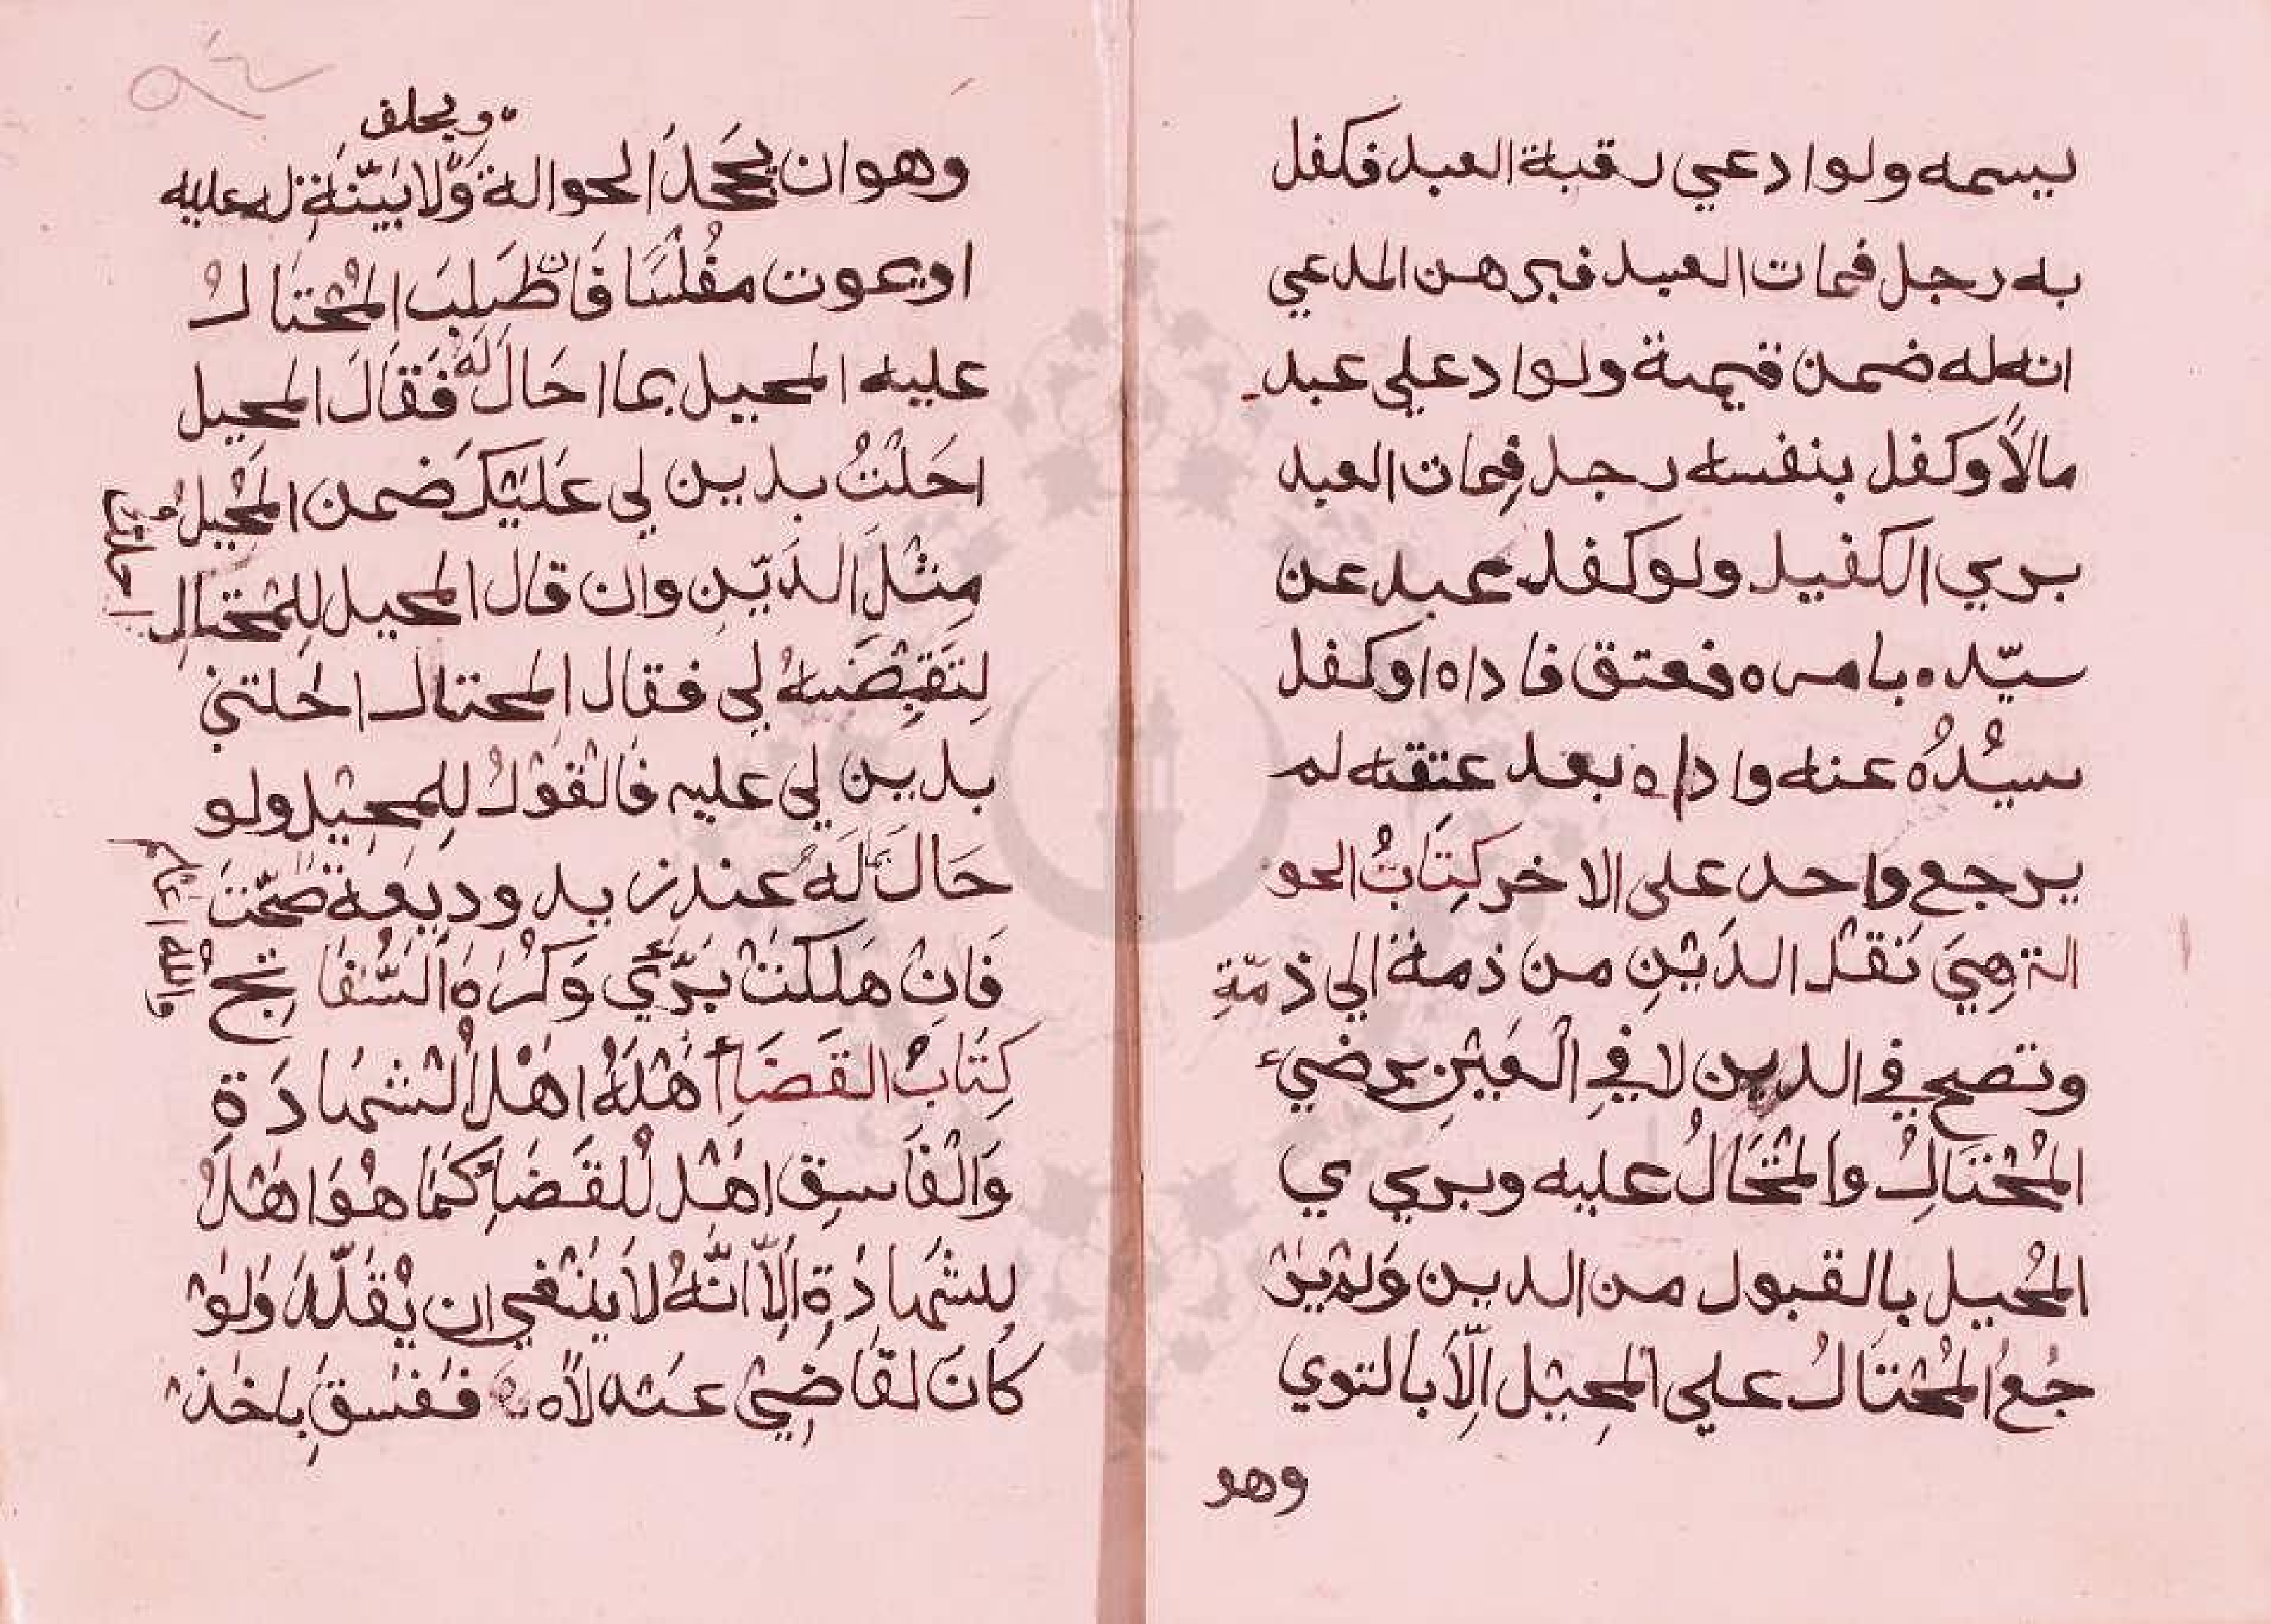 يسمه ولو ادعي رقبة العبد فكفل
به رجل فمات العبد فبرهن المدعي
انه له ضمن قيمة ولو ادعلي عبد
مالًا وكفل بنفسه رجل فمات العبد
بري الكفيل ولو كفل عبد عن
سيّده بامره فعتق فاداه او كفل
سيْدُهُ عنه واداه بعد عتقه لم
يرجع واحد على الاخر كِتَابُ الحو
الة هِيَ نَقْل الدَيْنِ من ذمة الي ذمّةِ
وتصح في الدين لا فِي الْعَيْنِ برضيء
المُحْتَالِ والمْحَالُ عليه وبري ي
المُحيل بالقبول من الدين وَلمْ يَرْ
جُعُ المُحْتَالُ علي المحِيْل اِلّاَ بالتوي
وهو
٩٤
ويحلف
وهو ان يجْحَدَ الحوالة وَّلَا بَيّنَةِ له عليه
او يموت مفُلْسًا فَان طَلَبَ المُحْتَالُ
عليه المحيل بما احَالَ لَهُ فَقَالَ المحيل
احَلْتُ بدين لي عَلَيْكَ ضمن المُحْيل
مِثْلَ الدَيّنِ وان قال المحيل لِلمُحْتَالِ
احلتك
لِتَقبِضَهُ لي فقال المحتال احلتني
بدين لي عليه فالْقَوْلُ لِلمحِيْل ولو
حَالَ بما لَهُ عند زيد وديعة صَحّتَ
فَانِ هَلكَتْ بَرّيَ وَكُرِهَ السُّفَا تجُ
والله اعلم
كِتَابُ القَضَاِ أهْلَهُ اهْلُ الشهَادَةِ
وَالْفَاسِق اهْل لْلقَضَاِ كَمَا هُوَ اهْلُ
للشهَادَةِ اِلَّا انَّهُ لَا يَنْبَغي ان يُقَلّدَ وَلَوْ
كَانَ لقَاضِيْ عَدْلًا ففسَقَ باخذ